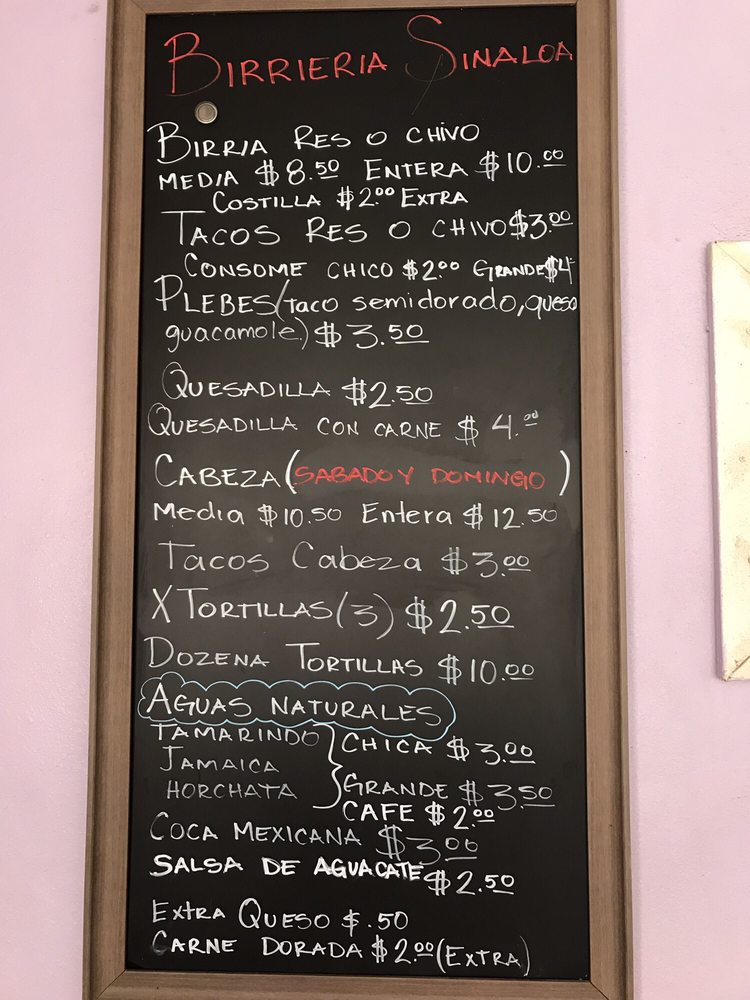 BIRRIERIA SINALOA
BIRRIA RES O CHIVO
MEDIA $8.50 ENTERA $10.00
COSTILLA $2.00 EXTRA
TACOS RES O CHIVO $3.00
CONSOME CHICO $2.00 GRANDE $4
PLEBES (taco semidorado, queso
guacamole) $3.50
QUESADILLA $2.50
QUESADILLA CON CARNE $4.00
CABEZA (SABADO Y DOMINGO)
Media $10.50 Entera $12.50
Tacos Cabeza $3.00
X TORTILLAS (3) $2.50
DOZENA TORTILLAS $10.00
AGUAS NATURALES
TAMARINDO } CHICA $3.00
JAMAICA
HORCHATA GRANDE $3.50
CAFE $2.00
COCA MEXICANA $3.00
SALSA DE AGUACATE $2.50
EXTRA QUESO $.50
CARNE DORADA $2.00 (EXTRA)